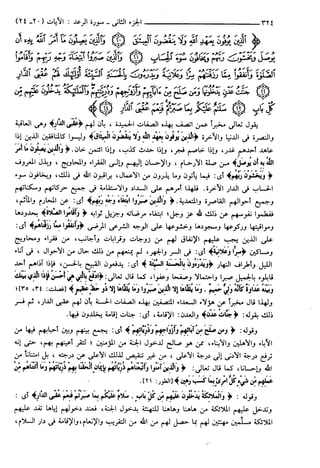 ٣٢٤ الجزء الثاني - سورة الرعد : الآيات (٢٠ - ٢٤)
الَّذِينَ يُوفُونَ بِعَهْدِ اللَّهِ وَلَا يَنْقُضُونَ الْمِيثَاقَ (٢٠) وَالَّذِينَ يَصِلُونَ مَا أَمَرَ اللَّهُ بِهِ أَنْ
يُوصَلَ وَيَخْشَوْنَ رَبَّهُمْ وَيَخَافُونَ سُوءَ الْحِسَابِ (٢١) وَالَّذِينَ صَبَرُوا ابْتِغَاءَ وَجْهِ رَبِّهِمْ وَأَقَامُوا
الصَّلَاةَ وَأَنْفَقُوا مِمَّا رَزَقْنَاهُمْ سِرًّا وَعَلَانِيَةً وَيَدْرَءُونَ بِالْحَسَنَةِ السَّيِّئَةَ أُولَئِكَ لَهُمْ عُقْبَى الدَّارِ
(٢٢) جَنَّاتُ عَدْنٍ يَدْخُلُونَهَا وَمَنْ صَلَحَ مِنْ آبَائِهِمْ وَأَزْوَاجِهِمْ وَذُرِّيَّاتِهِمْ وَالْمَلَائِكَةُ يَدْخُلُونَ عَلَيْهِمْ مِنْ
كُلِّ بَابٍ (٢٣) سَلَامٌ عَلَيْكُمْ بِمَا صَبَرْتُمْ فَنِعْمَ عُقْبَى الدَّارِ (٢٤)
يقول تعالى مخبراً عمن اتصف بهذه الصفات الحميدة ، بأن لهم ﴿عقبى الدار﴾ وهي العاقبة
والنصرة في الدنيا والآخرة ﴿الذين يوفون بعهد الله ولا ينقضون الميثاق﴾ وليسوا كالمنافقين الذين إذا
عاهد أحدهم غدر، وإذا خاصم فجر، وإذا حدث كذب، وإذا اؤتمن خان. ﴿والذين يصلون ما أمر
الله به أن يوصل﴾ من صلة الأرحام ، والإحسان إليهم وإلى الفقراء والمحاويج ، وبذل المعروف
﴿ويخشون ربهم﴾ أي: فيما يأتون وما يذرون من الأعمال، يراقبون الله في ذلك، ويخافون سوء
الحساب في الدار الآخرة. فلهذا أمرهم على السداد والاستقامة في جميع حركاتهم وسكناتهم
وجميع أحوالهم القاصرة والمتعدية. ﴿والذين صبروا ابتغاء وجه ربهم﴾ أي: عن المحارم والمآثم،
ففطموا نفوسهم عن ذلك لله عز وجل؛ ابتغاء مرضاته وجزيل ثوابه ﴿وأقاموا الصلاة﴾ بحدودها
ومواقيتها وركوعها وسجودها وخشوعها على الوجه الشرعي المرضي ﴿وأنفقوا مما رزقناهم﴾ أي:
على الذين يجب عليهم الإنفاق لهم من زوجات وقرابات وأجانب، من فقراء ومحاويج
ومساكين ﴿سراً وعلانية﴾ أي: في السر والجهر، لم يمنعهم من ذلك حال من الأحوال ، في آناء
الليل وأطراف النهار ﴿ويدرءون بالحسنة السيئة﴾ أي: يدفعون القبيح بالحسن، فإذا آذاهم أحد
قابلوه بالجميل صبراً واحتمالاً وصفحاً وعفواً، كما قال تعالى: ﴿ادفع بالتي هي أحسن فإذا الذي بينك
وبينه عداوة كأنه ولي حميم. وما يلقاها إلا الذين صبروا وما يلقاها إلا ذو حظ عظيم﴾ [فصلت: ٣٤، ٣٥]؛
ولهذا قال مخبراً عن هؤلاء السعداء المتصفين بهذه الصفات الحسنة بأن لهم عقبى الدار، ثم فسر
ذلك بقوله: ﴿جنات عدن﴾ والعدن: الإقامة، أي: جنات إقامة يخلدون فيها.
وقوله: ﴿ومن صلح من آبائهم وأزواجهم وذرياتهم﴾ أي: يجمع بينهم وبين أحبابهم فيها من
الآباء والأهلين والأبناء، ممن هو صالح لدخول الجنة من المؤمنين ؛ لتقر أعينهم بهم، حتى إنه
ترفع درجة الأدنى إلى درجة الأعلى ، من غير تنقيص لذلك الأعلى عن درجته ، بل امتناناً من
الله وإحساناً، كما قال تعالى: ﴿والذين آمنوا واتبعتهم ذريتهم بإيمان ألحقنا بهم ذريتهم وما ألتناهم من
عملهم من شيء كل امرئ بما كسب رهين﴾ [الطور: ٢١].
وقوله: ﴿والملائكة يدخلون عليهم من كل باب. سلام عليكم بما صبرتم فنعم عقبى الدار﴾ أي :
وتدخل عليهم الملائكة من هاهنا وهاهنا للتهنئة بدخول الجنة، فعند دخولهم إياها تفد عليهم
الملائكة مسلمين مهنئين لهم بما حصل لهم من الله من التقريب والإنعام، والإقامة في دار السلام،